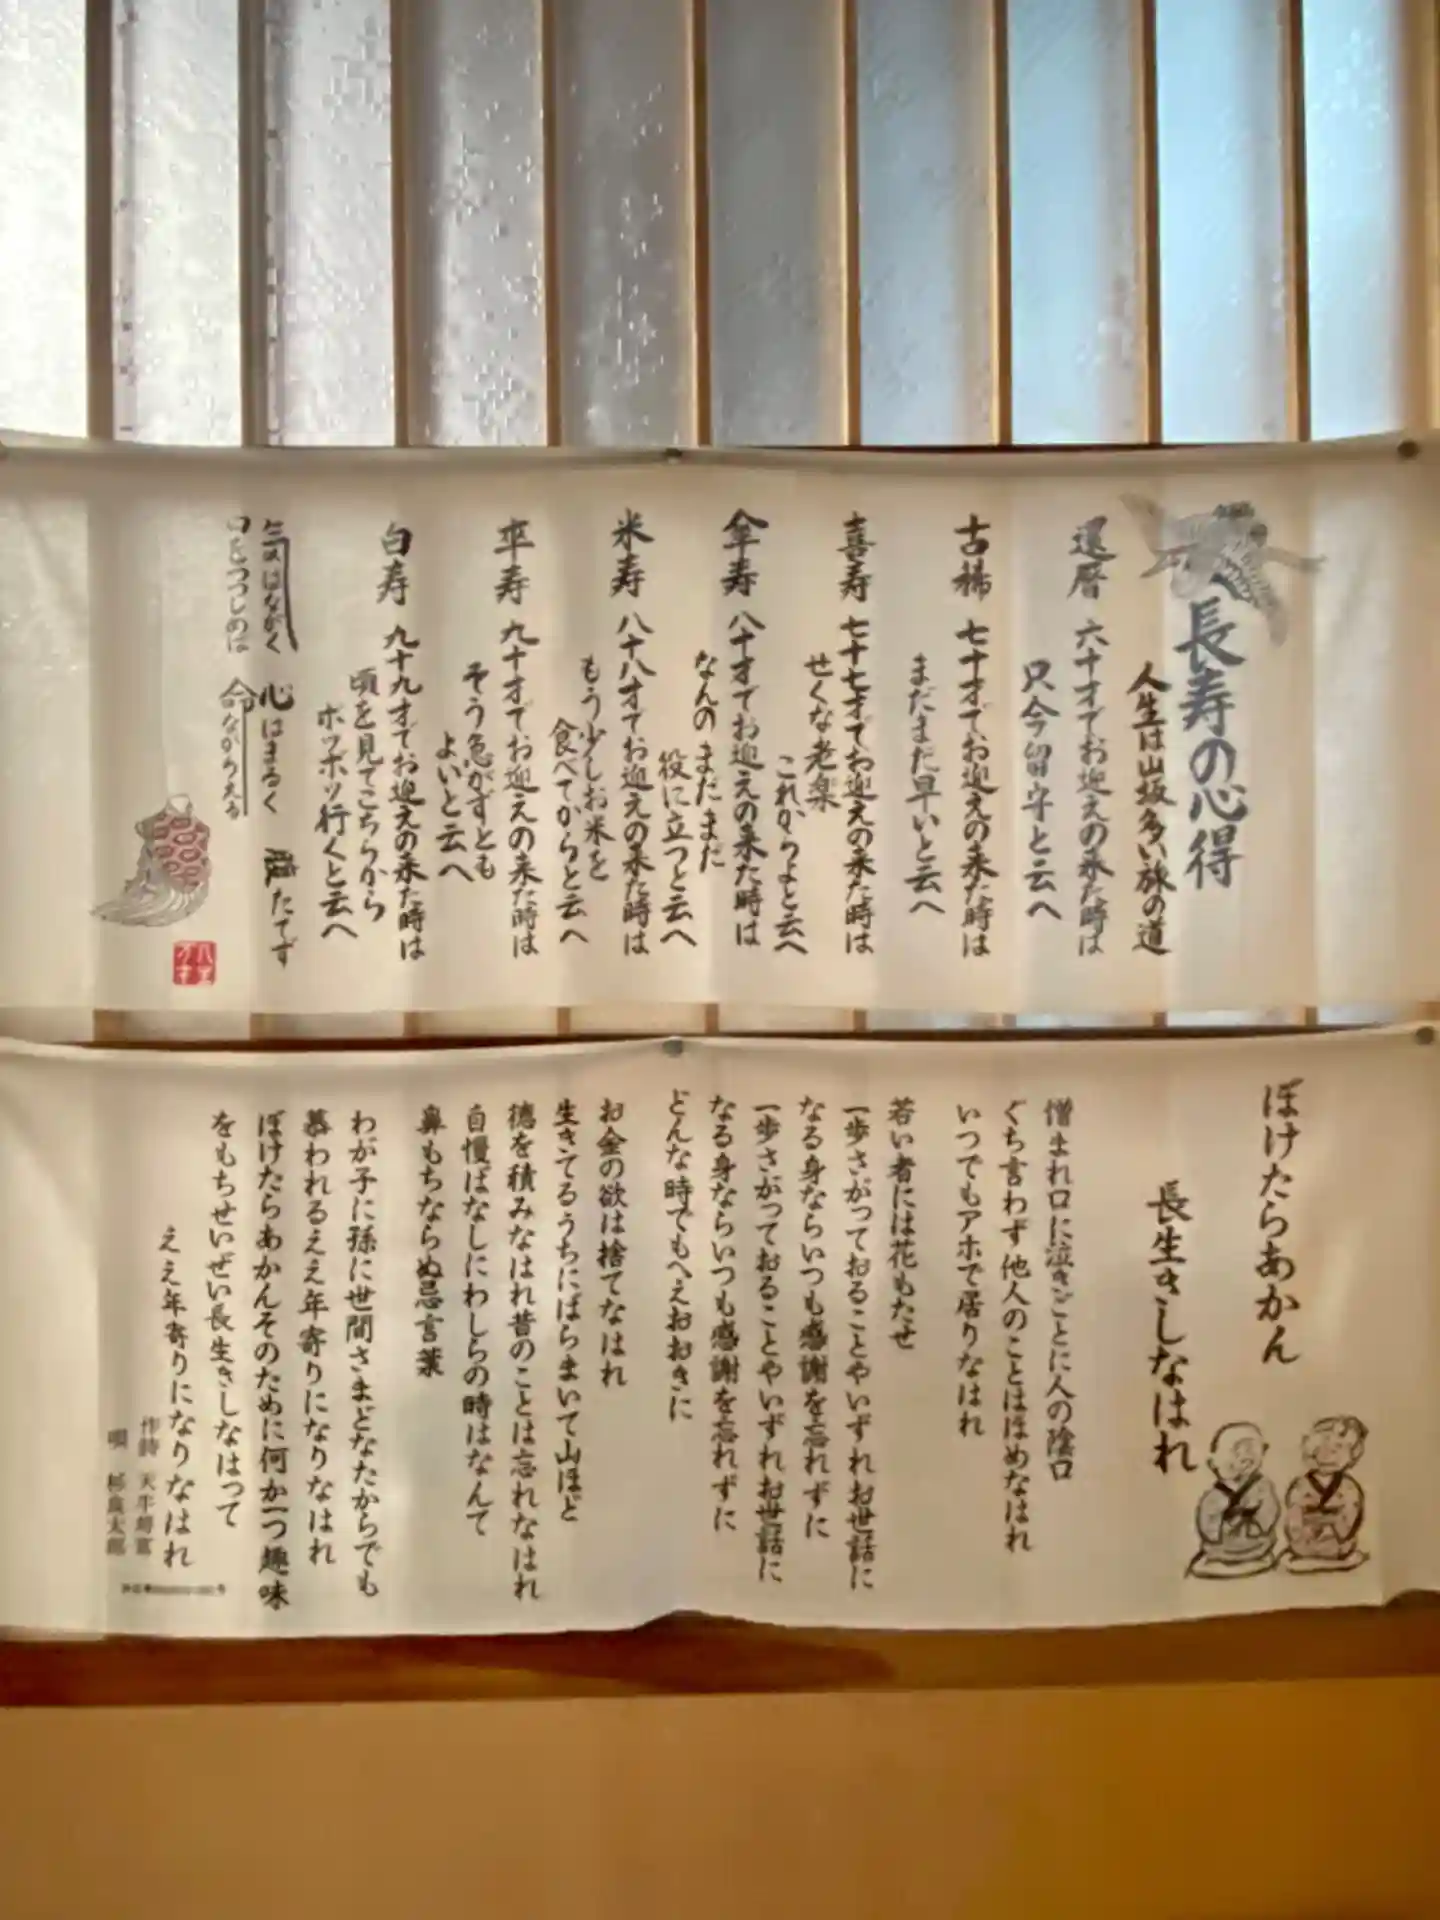 長寿の心得
人生は山坂多い旅の道
還暦 六十才でお迎えの来た時は
只今留守と云へ
古稀 七十才でお迎えの来た時は
まだまだ早いと云へ
喜寿 七十七才でお迎えの来た時は
せくな老楽
これからよと云へ
傘寿 八十才でお迎えの来た時は
なんのまだまだ
役に立つと云へ
米寿 八十八才でお迎えの来た時は
もう少しお米を
食べてからと云へ
卒寿 九十才でお迎えの来た時は
そう急がずとも
よいと云へ
白寿 九十九才でお迎えの来た時は
頃を見てこちらから
ボツボツ行くと云へ
気はながく 心はまるく 腹たてず
口をつつしめば 命ながらえる
ぼけたらあかん
長生きしなはれ
憎まれ口に泣きごとに人の陰口
ぐち言わず他人のことはほめなはれ
いつでもアホで居りなはれ
若い者には花もたせ
一歩さがっておることやいずれお世話に
なる身ならいつも感謝を忘れずに
一歩さがっておることやいずれお世話に
なる身ならいつも感謝を忘れずに
どんな時でもへえおおきに
お金の欲は捨てなはれ
生きてるうちにばらまいて山ほど
徳を積みなはれ昔のことは忘れなはれ
自慢ばなしにわしらの時はなんて
鼻もちならぬ忌言葉
わが子に孫に世間さまどなたからでも
慕われるええ年寄りになりなはれ
ぼけたらあかんそのために何か一つ趣味
をもちせいぜい長生きしなはって
ええ年寄りになりなはれ
作詩 天牛将富
唄 杉良太郎